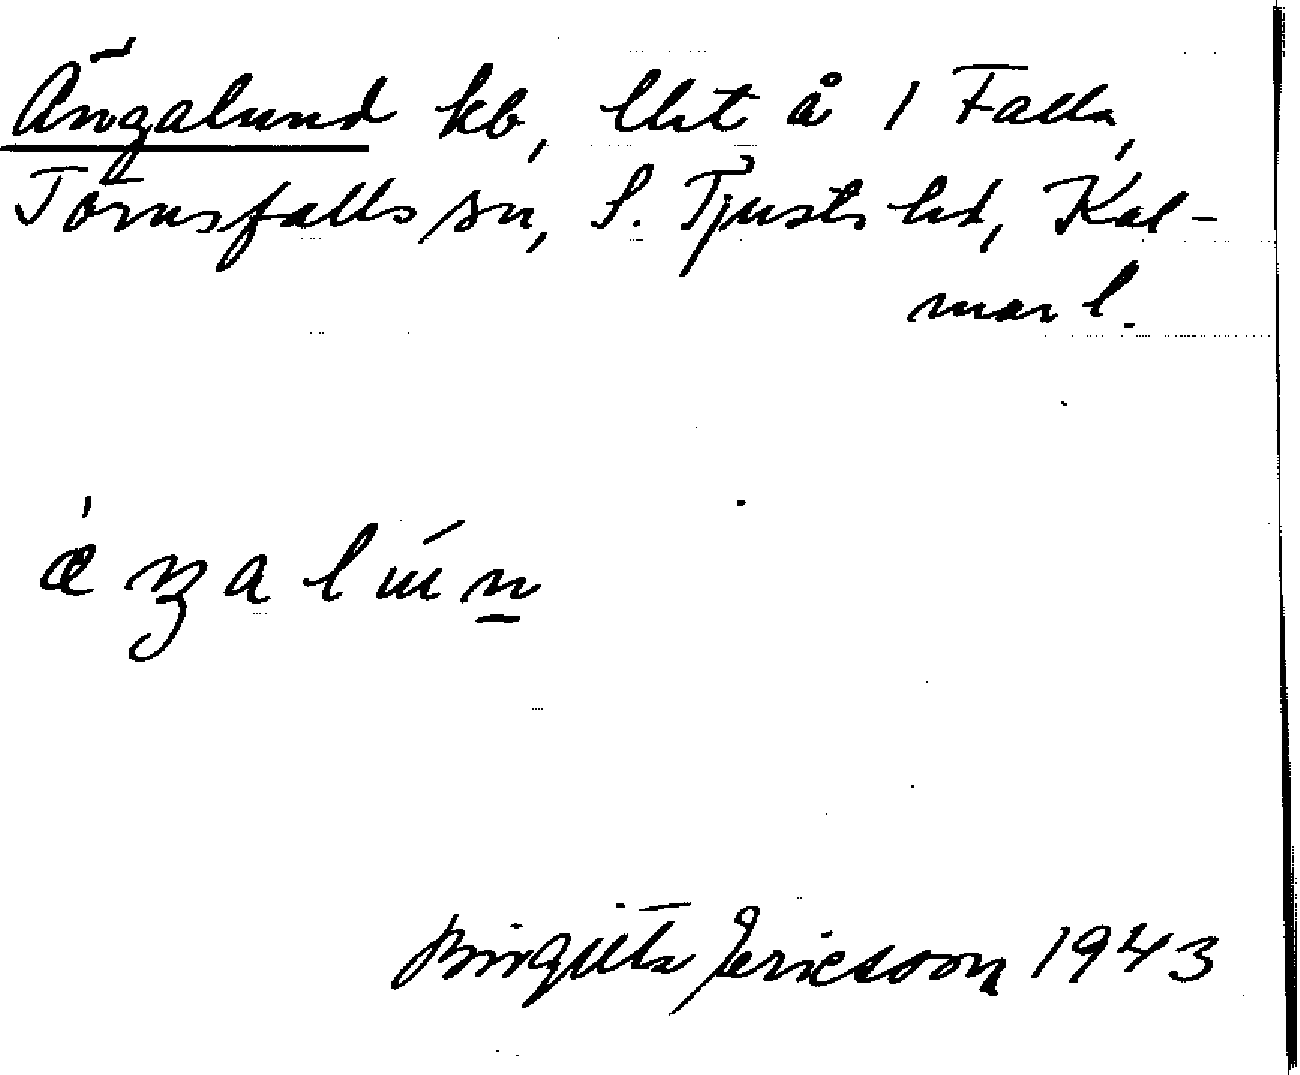 Ängalund kb, lht å 1 Falla,
Törnsfalls sn, S. Tjusts hd, Kal-
mar l.
ǽŋalún̲
Birgitta Ericsson 1943